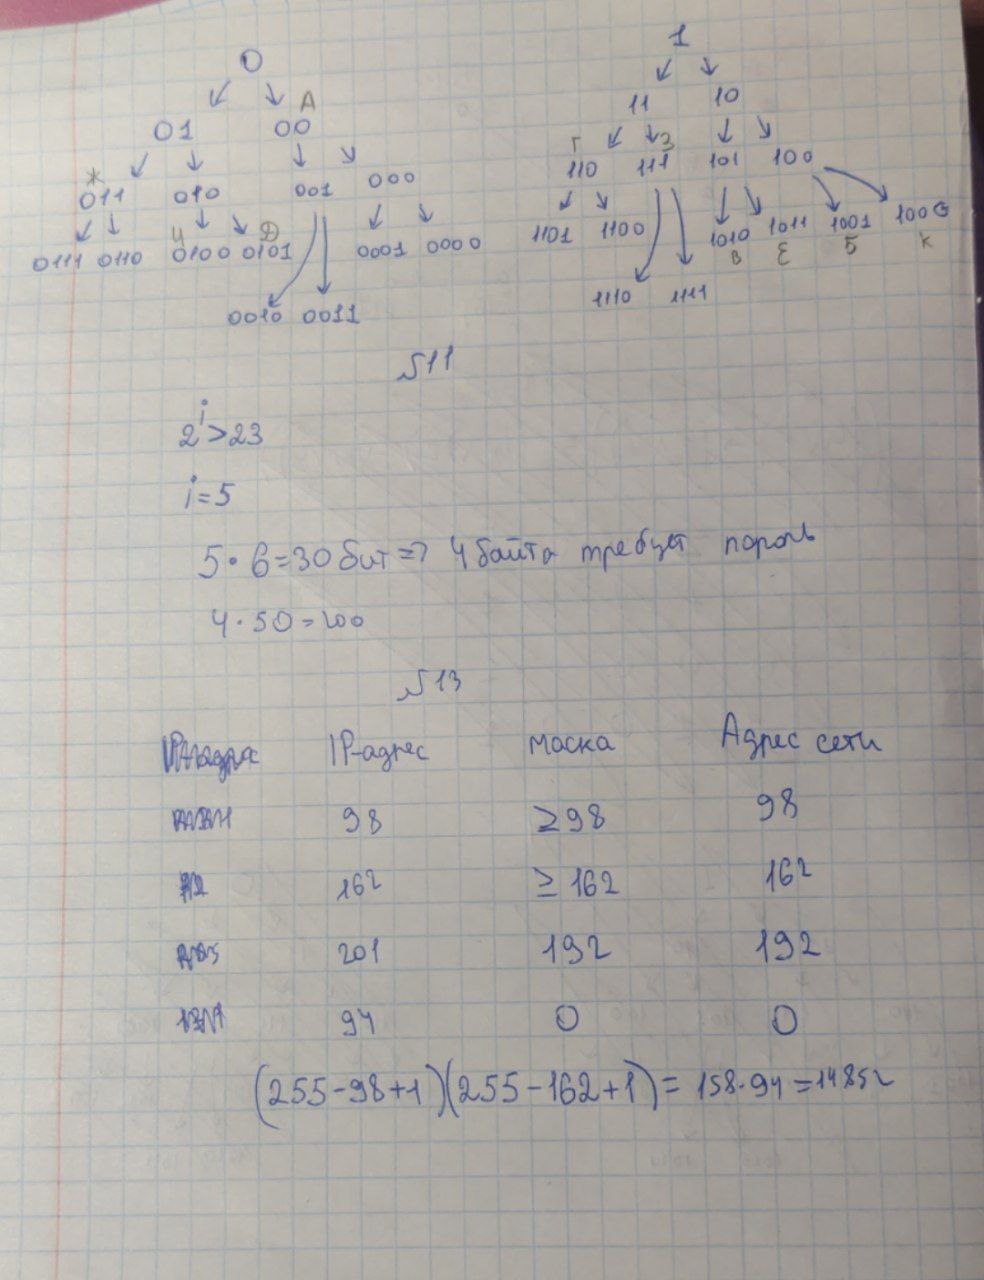 0 1
А
01 00 11 10
Ж Г З
011 010 001 000 110 111 101 100
И Д
0111 0110 0100 0101 0001 0000 1101 1100 1010 1011 1001 1000
В Е Б К
0010 0011 1110 1111
№11
2^i>23
i=5
5·6=30бит=> 4 байта требует пароль
4·50=200
№13
IP-адрес маска Адрес сети
98 ≥98 98
162 ≥162 162
201 192 192
94 0 0
(255-98+1)(255-162+1)=158·94=14852